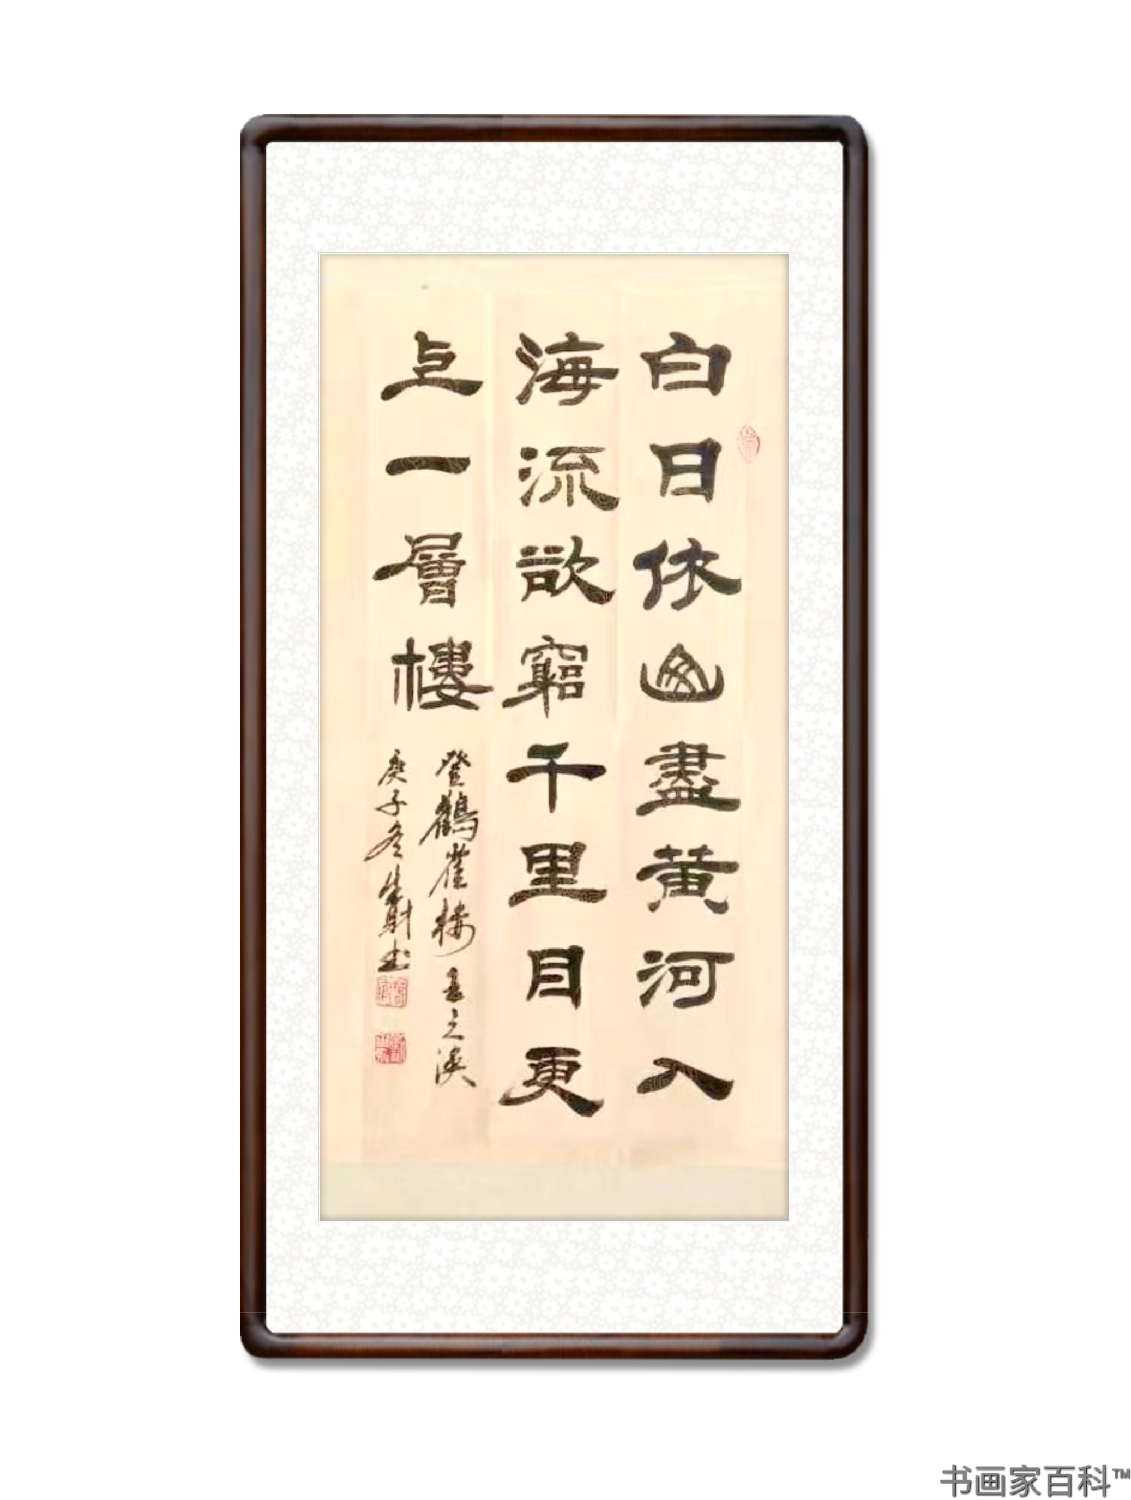 白日依山盡黄河入
海流欲窮千里目更
上一層樓
登鶴雀楼王之渙
庚子冬
书画家百科™